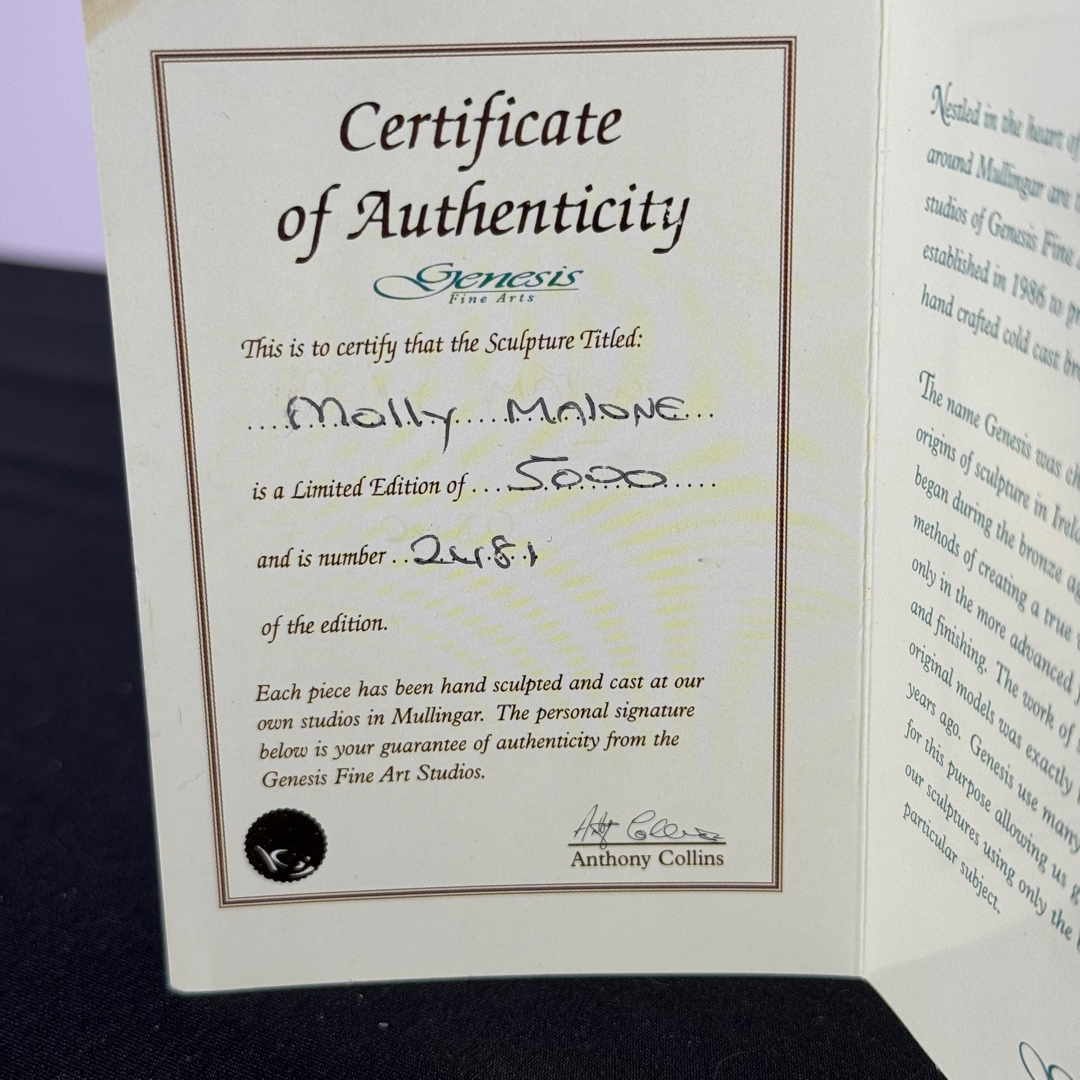 Certificate
of Authenticity
Genesis
Fine Arts
This is to certify that the Sculpture Titled:
....Molly.....MALONE...
is a Limited Edition of ...5000.....
and is number ..2481
of the edition.
Each piece has been hand sculpted and cast at our
own studios in Mullingar. The personal signature
below is your guarantee of authenticity from the
Genesis Fine Art Studios.
Anthony Collins
Nestled in the heart of
around Mullingar are
studios of Genesis Fine
established in 1986 to
hand crafted cold cast
The name Genesis was
origins of sculpture in
began during the bronze
methods of creating a true
only in the more advanced
and finishing. The work of
original models was exactly
years ago. Genesis use many
for this purpose allowing us
our sculptures using only the
particular subject.